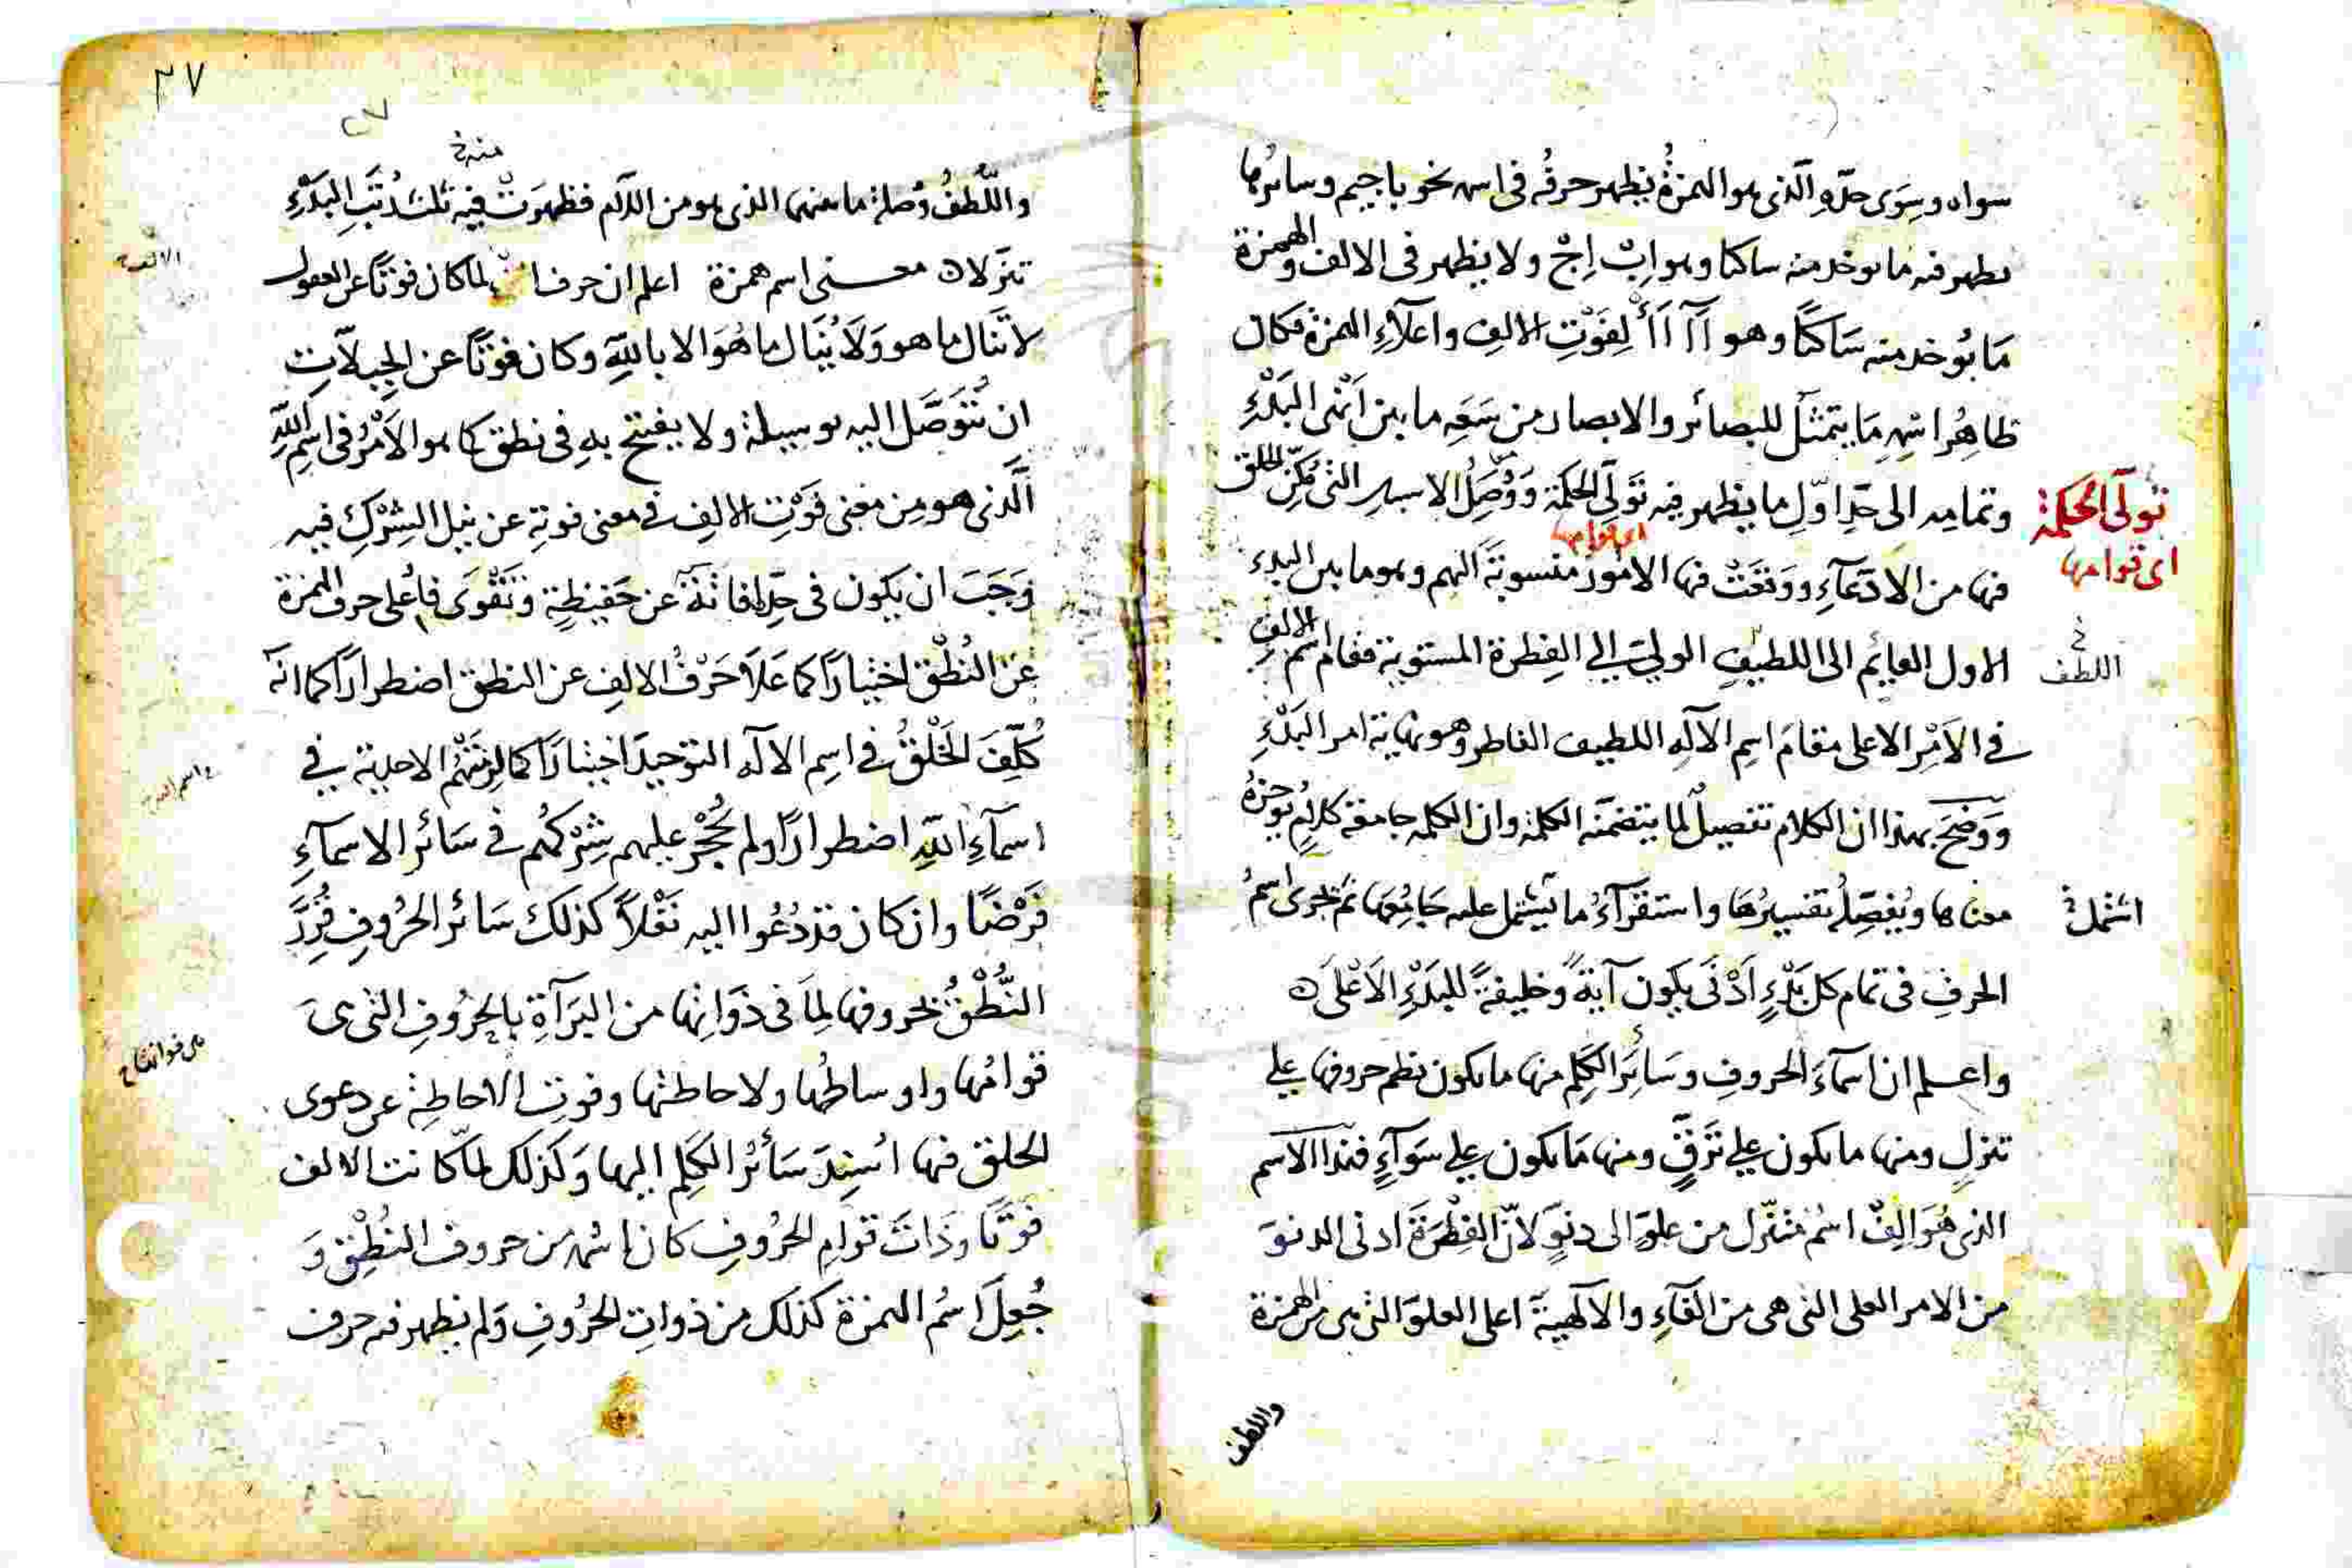 سواه وسِوَى حدّهِ الّذى هو الهمزةُ يظهر حرفُه فى اسمه نحو با جيم وسائرُها
يظهر فيه ما يوخذ منه ساكنا وهو ابْ اِجْ ولا يظهر فى الالف والهمزة
مَا يُوخذ منه سَاكنًا وهو آآ أَأْ لِفَوْتِ الالفِ واعلآءِ الهمزة فكان
ظاهِرُ اسْمِهِ مَا يتمثّل للبصائر والابصار من سَعَهِ ما بين اَنْهَى البَدْءِ
تَولّى الحكمة
اى قوامها
وتماديه الى حَدِّ اوّلِ ما يظهر فيه تَولّى الحكمة وَوُصَلُ الاسباب التى مُكِّنَ الخلق
اى قوامها
فيها من الادّعآءِ ووقعَتْ فيها الامُورُ منسوبَةً اليهم وهو ما بين البدء
الاول القايم الى اللطيفِ الولىّ الى الفِطرة المستوية فقام اسم الالفِ
اللطف خ
فى الاَمْرِ الاعلى مقامَ اسمِ الاله اللطيف الفاطر وهو نهاية امر البَدْءِ
وَوَضَحَ بهذا ان الكلام تفصيلٌ لما يتضمّنه الكلمة وان الكلمه جامعة كلامٍ يُوجزهُ
معناها ويُفصّلُه تفسيرُها واستقرآءُ ما تشتمل عليه جَامِعُهَا ثم يجرى اسمُ
اشتمل خ
الحرفِ فى تمام كل بَدْءٍ اَدْنَى يكون آيةً وخليفةً للبَدْءِ الاَعْلَى ه
واعلم ان اسمآءَ الحروفِ وسَائرَ الكَلِمِ منها ما يكون نظم حروفها على
تنزلٍ ومنها ما يكون على تَرَقٍّ ومنها مَا يكون على سَوَآءٍ فهذا الاسم
الذى هُوَ الِفٌ اسْمٌ مُتنزّل من علوٍّ الى دنوٍّ لانّ الفِطْرَةَ ادنى الدنوّ
من الامر العلى التى هى من الفَآءِ والالٰهيةَ اعلى العلوّ التى هى من الهمزة
واللطف
٢٧
٢٧
منه خ
واللُّطفُ وُصلة ما بينهما الذى هو من اللام فظهرَتْ فيه ثلث رُتَبِ البَدْءِ
تنزلاه معنى اسم همزة اعلم ان حرف لما كان فوتًا عن العقول
لا تَنَال ما هو وَلاَ يُنَال ما هُوَ الا باللّهِ وكان فوتًا عن الجِبلّاتِ
ان تُتَوَصَّل اليه بوسيلة ولا يفتتح بهِ فى نطق كما هو الاَمْرُ فى اسمِ اللّهِ
الَّذى هو مِن معنى فَوْتِ الالِفِ فى معنى فوتِهِ عن نيل الشِرْكِ فيه
وَجَبَ ان يكون فى حدّ
عَنِ النُطْق اختيارًا كما عَلاَ حَرْفُ الالِفِ عن النطق اضطرارًا كما انّه
كُلِّفَ الخَلْقُ فى اسمِ الاله التوحيدَ اختيارًا كما لزمَتْهُم الاحديّة فى
اسمآءِ اللّهِ اضطرارًا ولم يُحْجَر عليهم شِرْكُهُم فى سَائر الاسمآءِ
فَرْضًا وان كان قد دُعُوا اليه نَفْلاً كذلك سَائر الحُروفِ
النُّطْقُ بحروفها لِمَا فى ذَوَاتِها من البَرَآةِ بالحُرُوفِ التى هى
قوامُها واوساطُها ولاحاطتها وفوتِ الاحاطةِ عن دعوى
الخلق فيها اُسْنِدَ سَائرُ الكَلِمِ اليها وَكذلك لمّا كانت الالف
فوتًا وذَاتَ قوامِ الحُرُوفِ كان اسْمُه من حروف النُطْقِ وَ
جُعِلَ اسمُ الهمزة كذلك من ذواتِ الحُرُوفِ وَلم يظهر فيه حرف